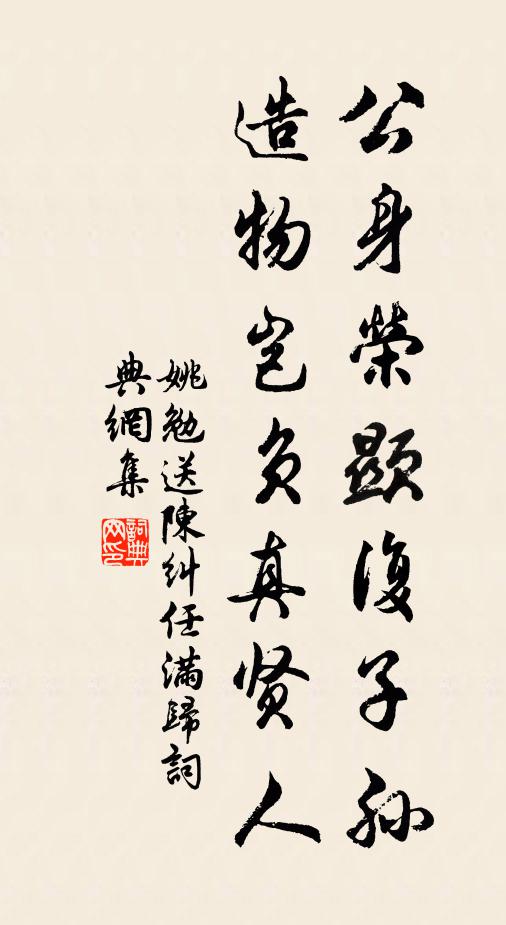 公身榮顯復子孫
造物岂負真贤人
姚勉送陳糾任滿歸詞
典網集
詞典网印